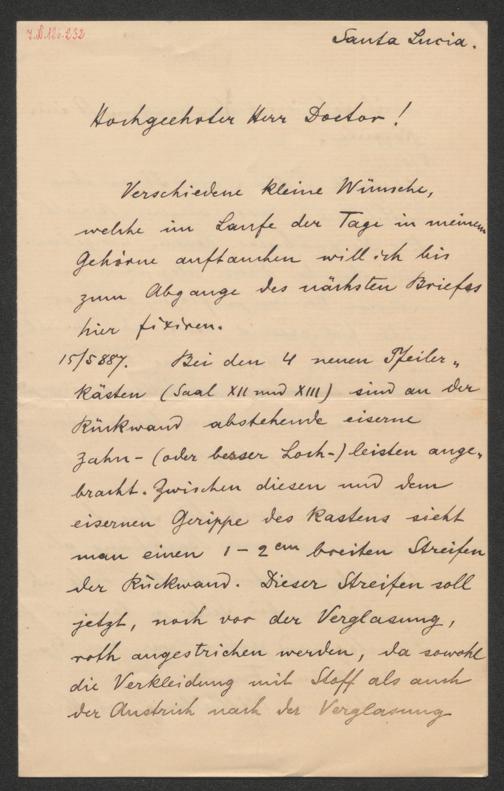 I.N. 120.232
Santa Lucia.
Hochgeehrter Herr Doctor!
Verschiedene kleine Wünsche,
welche im Laufe der Tage in meinem
Gehörne auftauchen will ich bis
zum Abgange des nächsten Briefes
hier fixiren.
15/5 887. Bei den 4 neuen Pfeiler-
kästen (Saal XII und XIII) sind an der
Rückwand abstehende eiserne
Zahn- (oder besser Loch-) leisten ange-
bracht. Zwischen diesen und dem
eisernen Gerippe des Kastens sieht
man einen 1-2 cm breiten Streifen
der Rückwand. Dieser Streifen soll
jetzt, noch vor der Verglasung,
roth angestrichen werden, da sowohl
die Verkleidung mit Stoff als auch
der Anstrich nach der Verglasung